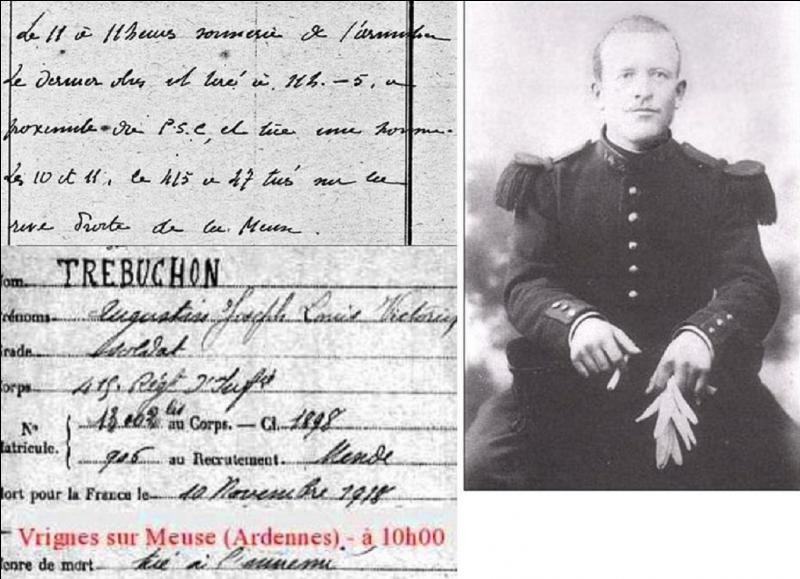 Le 11 à 11 heures sonnerie de l'armistice
Le dernier obus est tiré à 11h.-5, a
proximité du P.S.C, et tue un homme.
Les 10 et 11, le 415 a 47 tués sur la
rive droite de la Meuse.
Nom. TREBUCHON
Prénoms. Augustin Joseph Louis Victorin
Grade. Soldat
Corps 415e Régt d'Infie
No Matricule. 13002 bis au Corps. — Cl. 1898
906 au Recrutement. Mende
Mort pour la France le 10 Novembre 1918
Vrignes sur Meuse (Ardennes) - à 10h00
Genre de mort tué à l'ennemi